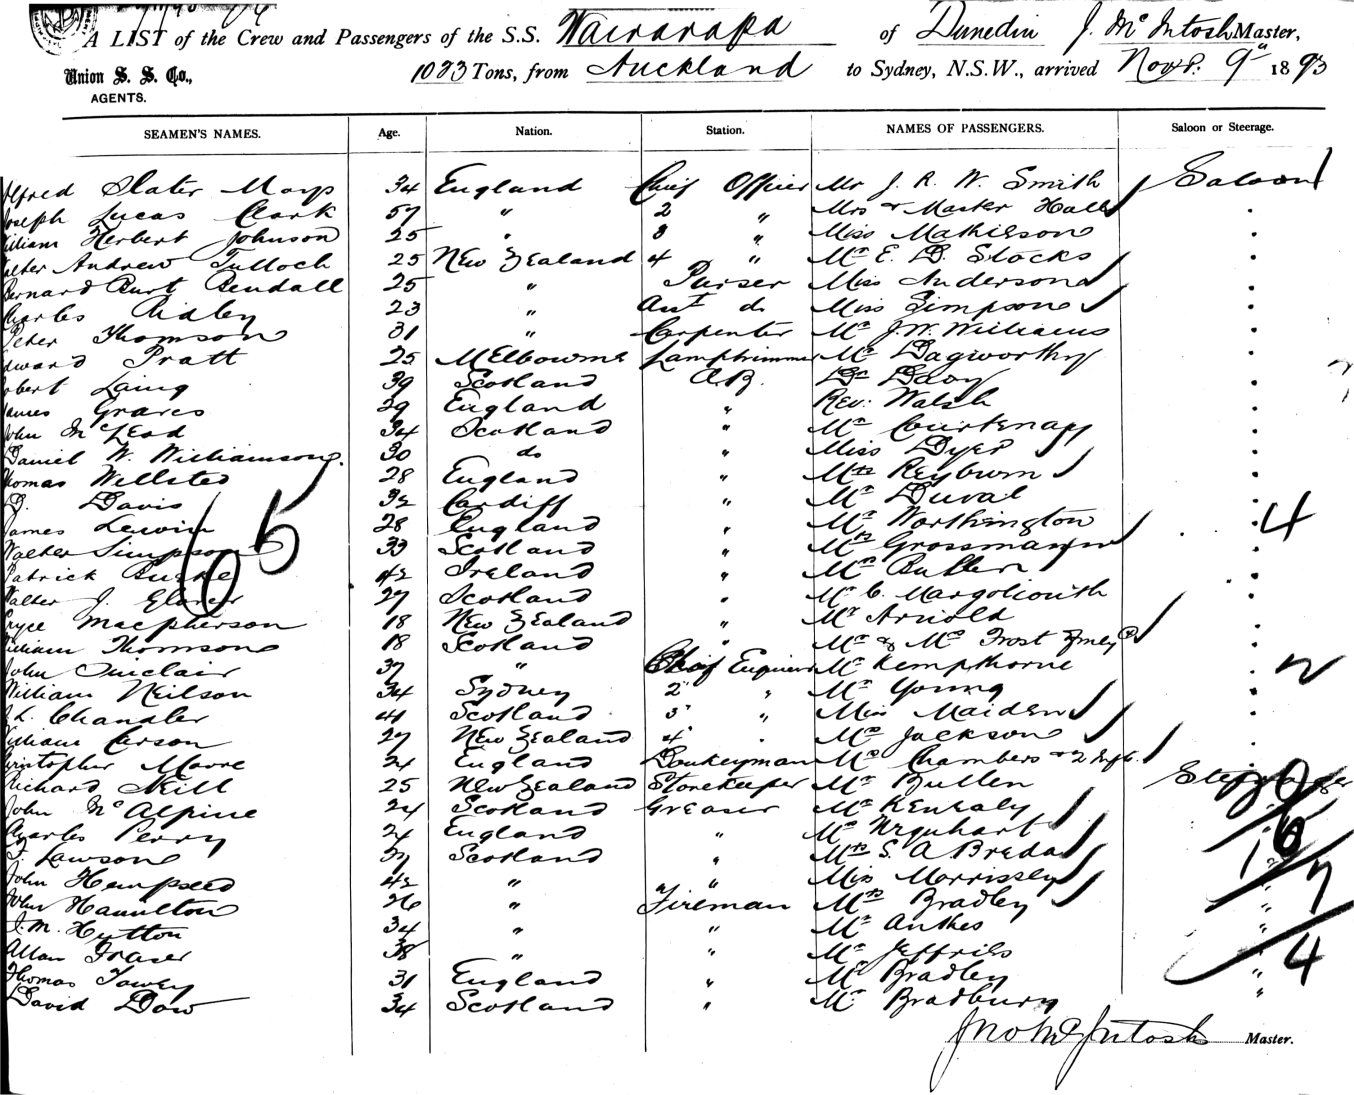 A LIST of the Crew and Passengers of the S.S. Wairarapa of Dunedin J. McIntosh Master,
Union S. S. Co., 1023 Tons, from Auckland to Sydney, N.S.W., arrived Novr. 9" 1893
AGENTS.
SEAMEN'S NAMES. Age. Nation. Station. NAMES OF PASSENGERS. Saloon or Steerage.
Alfred Slater Mays 34 England Chief Officer Mr J. R. W. Smith Saloon
Joseph Lucas Clark 57 " 2 " Mrs & Master Hall
William Herbert Johnson 25 " 3 " Miss
Walter Andrew Tulloch 25 New Zealand 4 " Mr E. D. Stocks
Bernard Burt Bendall 25 " Purser Miss Anderson
Charles Ridley 23 " do Miss Simpson
Peter Thomson 31 " Carpenter Mr J. W. Williams
Edward Pratt 25 Melbourne Lamptrimmer Mr Dagworthy
Robert Laing 39 Scotland A.B. Dr Davy
James Graves 29 England " Rev: Walsh
John McLeod 34 Scotland " Mr Courtenay
Daniel W. Williamson. 30 do " Miss Dyer
Thomas Wellsted 28 England " Mrs Reyburn
D. Davis 32 Cardiff " Mr Duval
James Lewin 28 England " Mr Worthington 4
Walter Simpson 33 Scotland " Mrs Grossmann
Patrick Burke 42 Ireland " Mr Butler
65
Walter J. 27 Scotland " Mr C. Margoliouth
Bryce Macpherson 18 New Zealand " Mr Arnold
William Thomson 18 Scotland " Mr & Mrs Frost
John Sinclair 37 " Chief Engineer Mr Kempthorne 2
William Neilson 34 Sydney 2" " Mr Young
J. L. Chandler 41 Scotland 3" " Miss Maiden
William Carson 27 New Zealand 4" " Jackson
Christopher Moore 24 England Donkeyman Chambers & 2
Richard Neill 25 New Zealand Storekeeper Mr Bullen
John McAlpine 24 Scotland Greaser Mr Kenealy
Charles Perry 24 England " Mr Urquhart 6
J. Lawson 37 Scotland " Mrs S. A. Breda
John Hempseed 42 " " Miss Morrissey 17
John Hamilton 26 " Fireman Mrs Bradley
J. M. Hutton 34 " " Mr Anthes
Allan Fraser 38 " " Mr Jeffries 4
Thomas Towey 31 England " Mr Bradley
David Dow 34 Scotland " Mr Bradbury
Jno McIntosh Master.